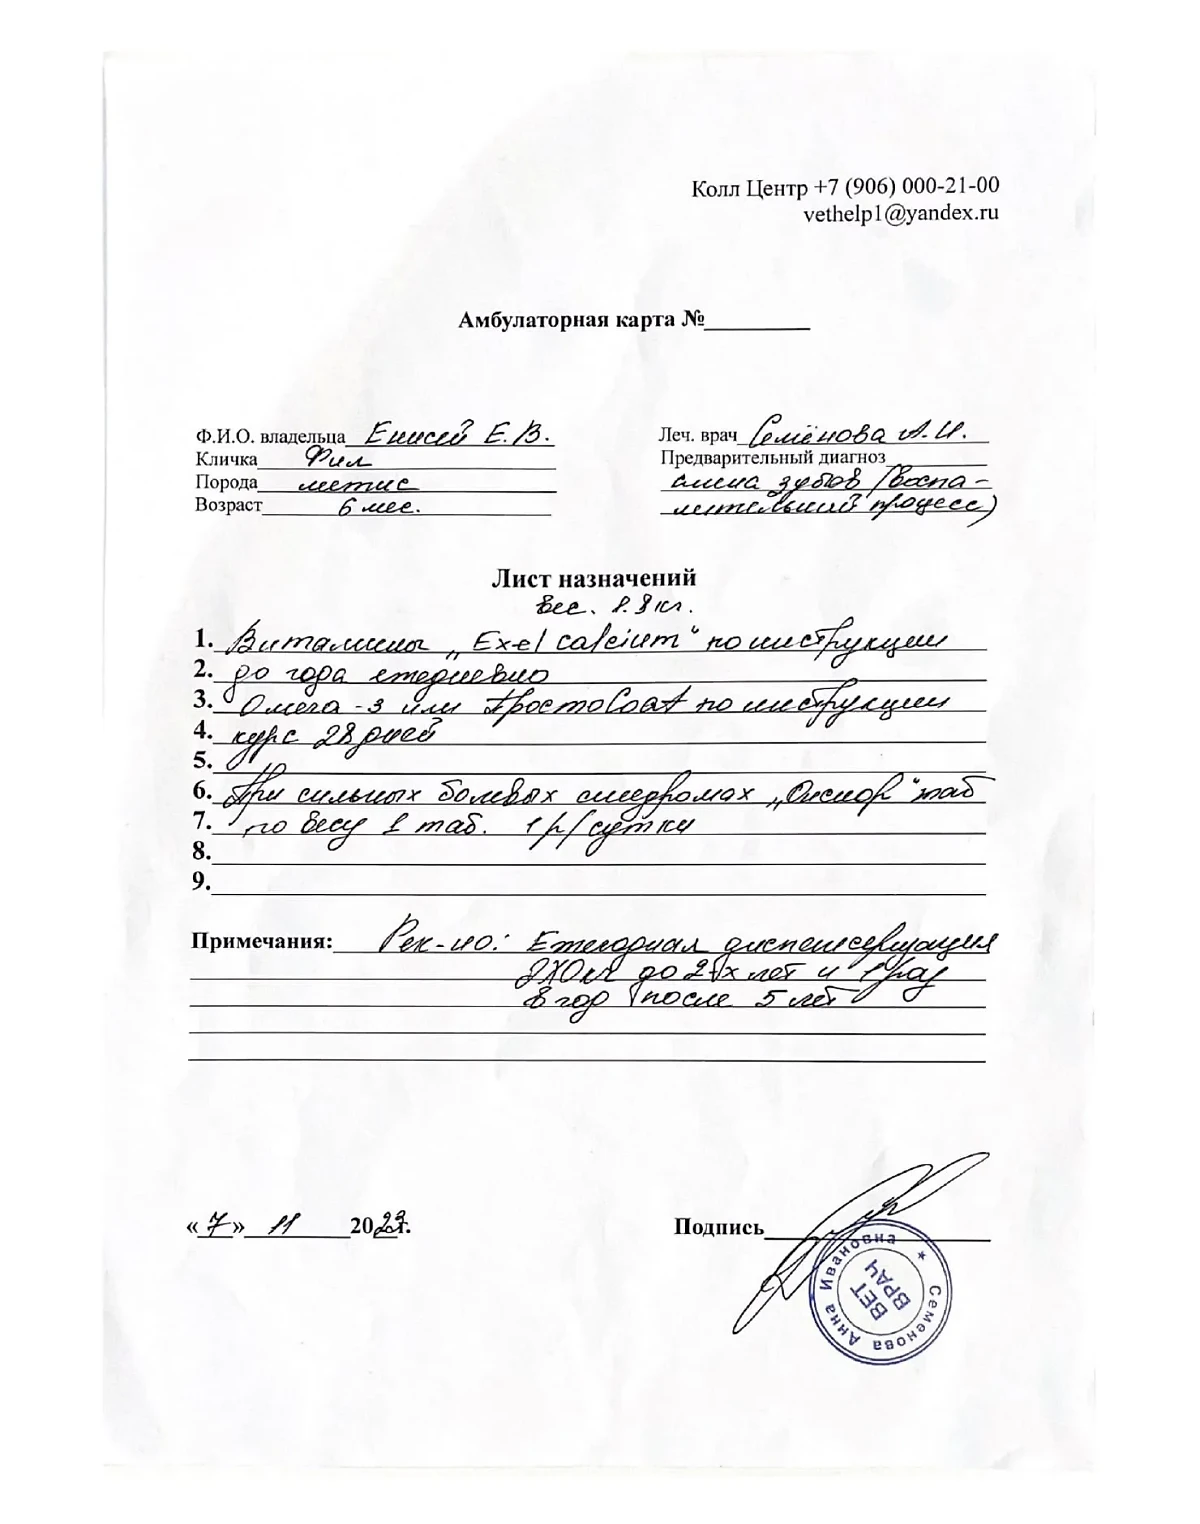 Колл Центр +7 (906) 000-21-00
vethelp1@yandex.ru
Амбулаторная карта №
Ф.И.О. владельца Енисей Е.В.
Кличка Фил
Порода метис
Возраст 6 мес.
Леч. врач Семёнова А.И.
Предварительный диагноз
смена зубов (воспа-
лительный процесс)
Лист назначений
Вес. 8.8 кг.
1. Витамины „Exel calcium" по инструкции
2. до года ежедневно
3. Омега-3 или ПростоCoat по инструкции
4. курс 28 дней
5.
6. При сильных болевых синдромах таб
7. по весу 1 таб. 1 р/сутки
8.
9.
Примечания: Рек-но: Ежегодная диспансеризация
до 2-х лет и 1 раз
в год после 5 лет
«7» 11 2023г.
Подпись
Семенова Анна Ивановна
ВЕТ
ВРАЧ